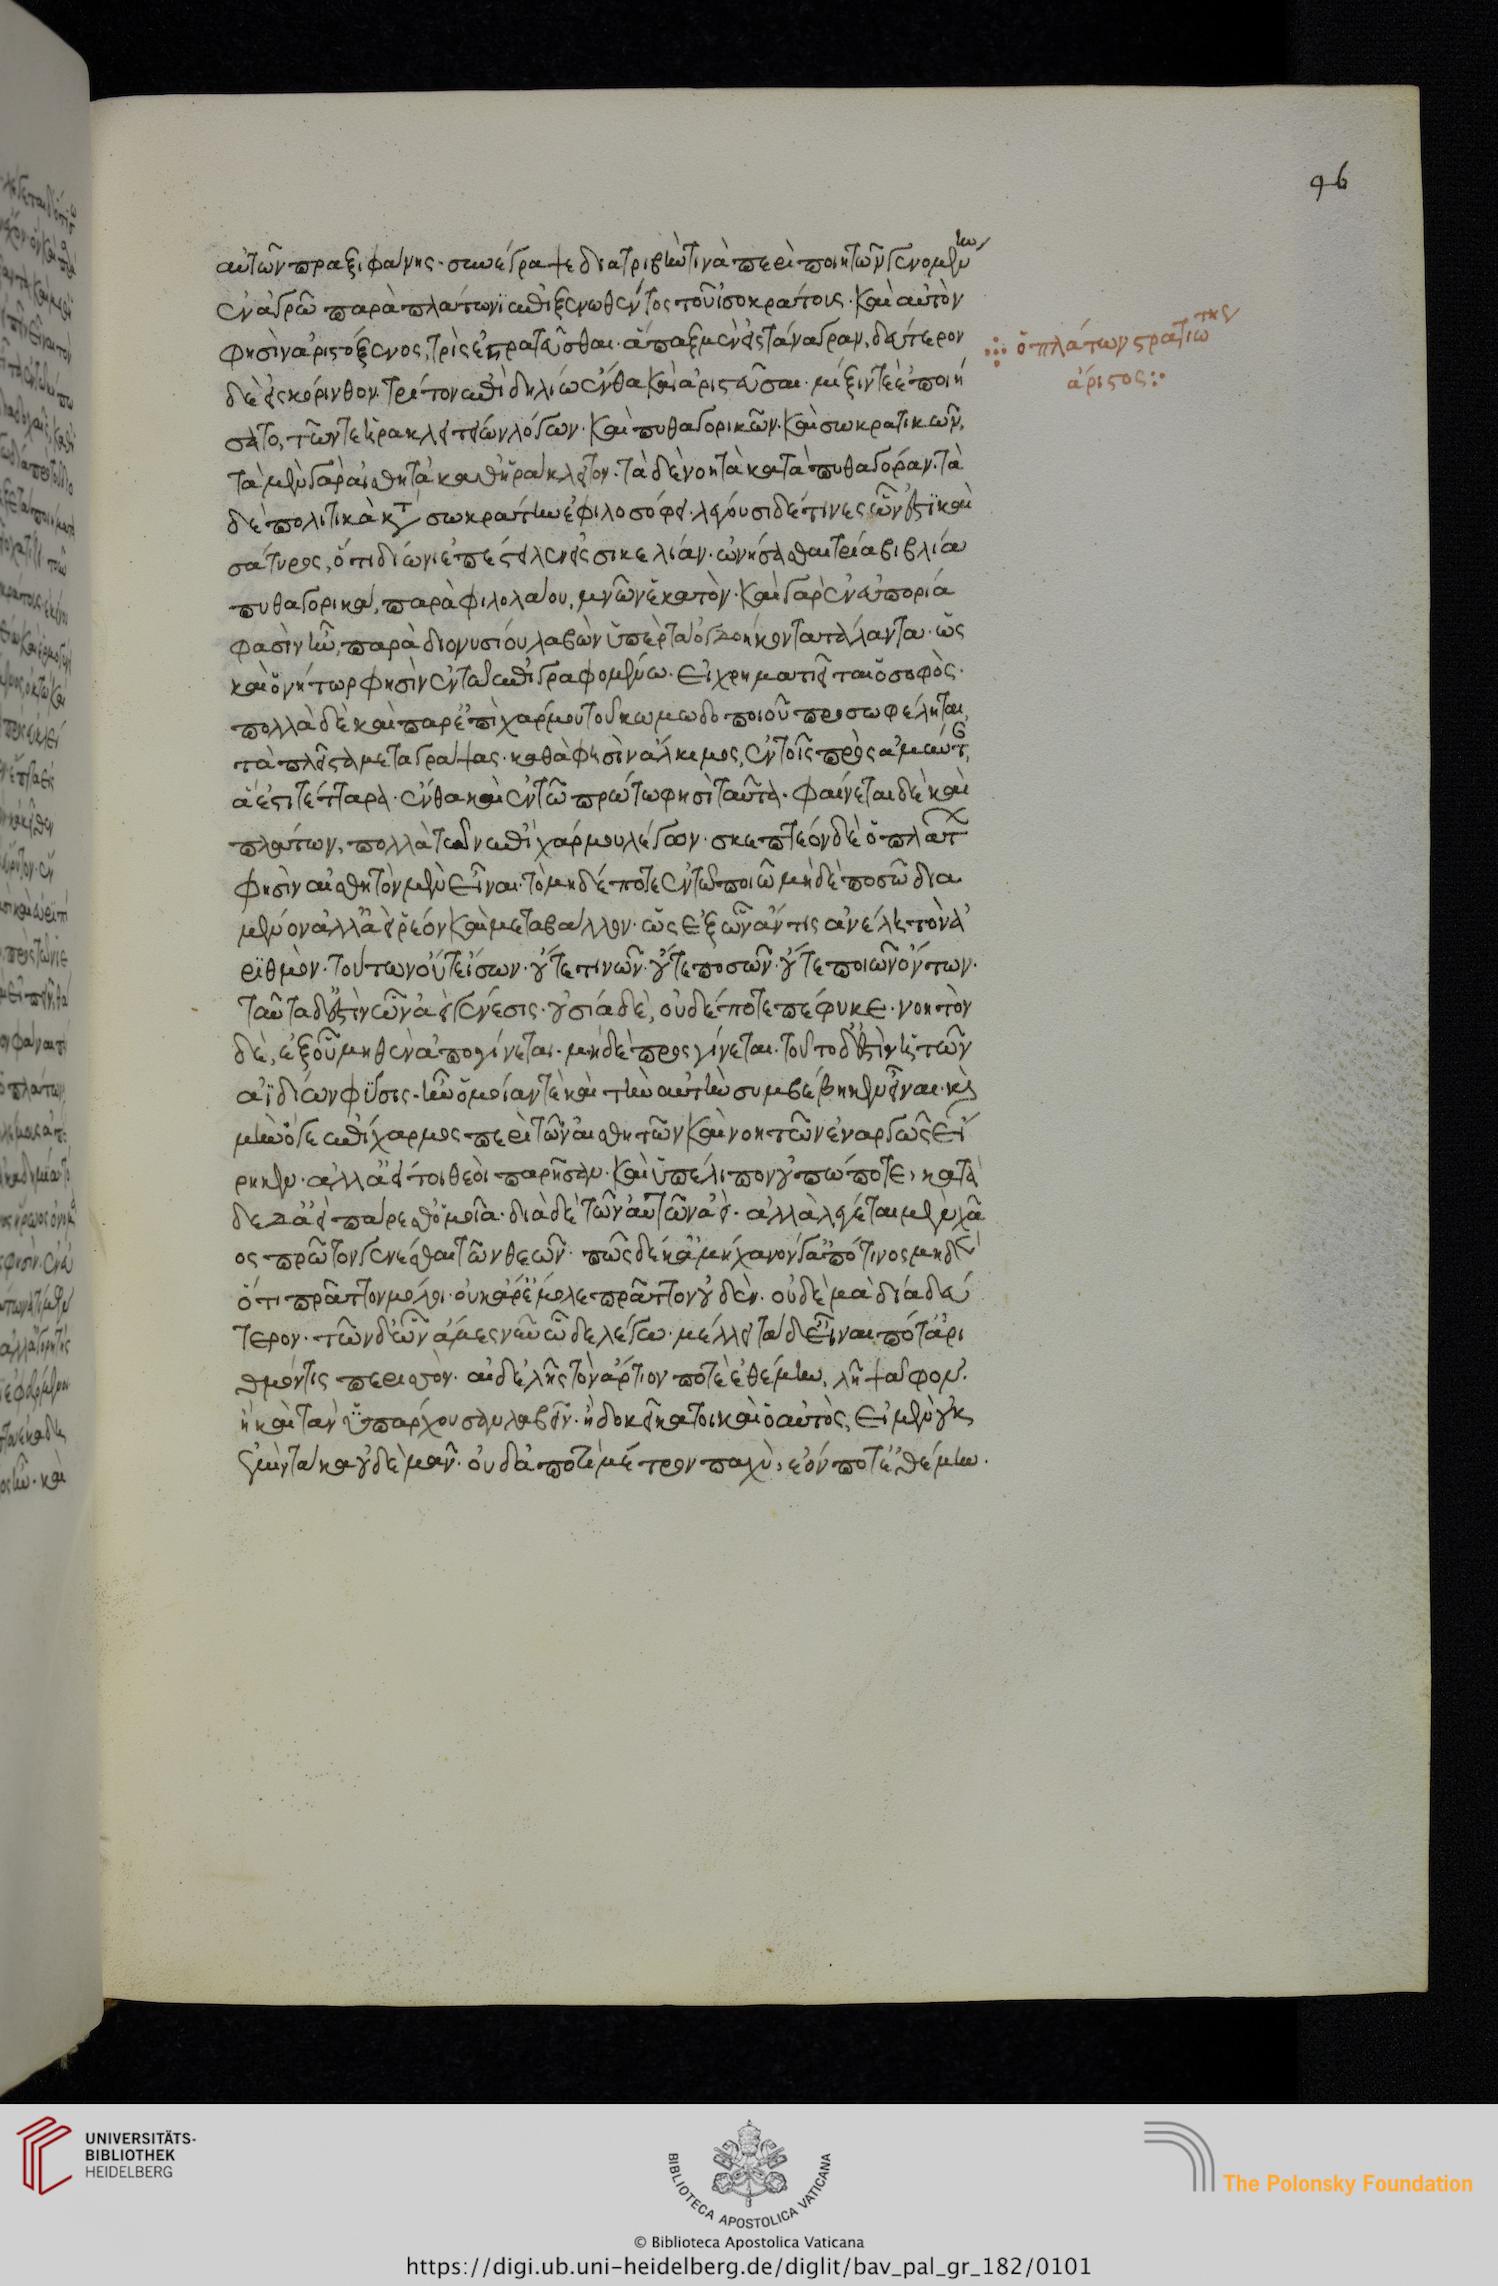 96
αὐτῶν πραξιφάνης· συνέγραψε διατριβὴν τινὰ περὶ ποιητῶν γενομένην
ἐν ἀγρῶ παρὰ πλάτωνι ἐπιξενωθέντος τοῦ ἰσοκράτους· καὶ αὐτὸν
φησὶν ἀριστόξενος, τρὶς ἐστρατεῦσθαι· ἅπαξ μὲν εἰς τάναγραν, δεύτερον
δὲ εἰς κόρινθον. τρίτον ἐπὶ δηλίω ἔνθα καὶ ἀριστεῦσαι· μίξιν τὲ ἐποιή
σατο, τῶν τε ἡρακλειτείων λόγων· καὶ πυθαγορικῶν· καὶ σωκρατικῶν,
τὰ μὲν γὰρ αἰσθητὰ καθ' ἡράκλειτον· τὰ δὲ νοητὰ κατὰ πυθαγόραν· τὰ
δὲ πολιτικὰ κτ σωκράτην ἐφιλοσόφει· λέγουσι δέ τινες ὧν ἐστὶ καὶ
σάτυρος, ὅτι δίωνι ἐπέστειλεν εἰς σικελίαν· ὠνήσασθαι τρία βιβλία
πυθαγορικά, παρὰ φιλολάου, μνῶν ἑκατόν· καὶ γὰρ ἐν εὐπορία
φασὶν ἦν, παρὰ διονυσίου λαβὼν ὑπὲρ τὰ ὀγδοήκοντα τάλαντα· ὡς
καὶ ὀνήτωρ φησὶν ἐν τῶ ἐπιγραφομένω· εἰ χρηματιεῖται ὁ σοφός·
πολλὰ δὲ καὶ παρ' ἐπιχάρμου τοῦ κωμωδοποιοῦ προσωφέληται,
τὰ πλεῖστα μεταγράψας· καθὰ φησὶν ἄλκιμος, ἐν τοῖς πρὸς ἀμύντ
ἅ ἐστι τέτταρα· ἔνθα καὶ ἐν τῶ πρώτω φησὶ ταῦτα· φαίνεται δὲ καὶ
πλάτων, πολλὰ τῶν ἐπιχάρμου λέγων· σκεπτέον δὲ ὁ πλάτ
φησὶν αἰσθητὸν μὲν εἶναι· τὸ μηδέποτε ἐν τῶ ποιῶ μηδὲ ποσῶ δια
μένον ἀλλ' ἀεὶ ῥέον καὶ μεταβάλλον· ὡς ἐξ ὧν ἄν τις ἀνέλη τὸν ἀ
ριθμόν· τούτων οὔτε ἴσων· οὔτε τινῶν· οὔτε ποσῶν· οὔτε ποιῶν ὄντων·
ταῦτα δ' ἐστὶν ὧν ἀεὶ γένεσις· οὐσία δὲ, οὐδέποτε πέφυκε· νοητὸν
δὲ, ἐξ οὗ μηθὲν ἀπογίνεται· μηδὲ προσγίνεται· τοῦτο δ' ἐστὶν ἡ τῶν
ἀϊδίων φύσις· ἣν ὁμοίαν τὲ καὶ τὴν αὐτὴν συμβέβηκεν εἶναι· κὶ
μὴν ὅγε ἐπίχαρμος περὶ τῶν αἰσθητῶν καὶ νοητῶν ἐναργῶς εἴ
ρηκεν· ἀλλ' ἀεί τοι θεοὶ παρῆσαν· καὶ ὑπέλιπον οὐ πώποτε, κατὰ
δε ἀεὶ πάρεσθ' ὁμοῖα· διὰ δὲ τῶν αὐτῶν ἀεί· ἀλλὰ λέγεται μὲν χᾶ
ος πρῶτον γενέσθαι τῶν θεῶν· πῶς δέ κ' ἀμήχανον γ' ἀπό τινος μηδὲ
ὅτι πρᾶτον μόλοι· οὐκ ἄρ' ἔμολε πρᾶτον οὐδέν· οὐδὲ μὰ δία δεύ
τερον· τῶν δ' ὧν ἀμὲς νῦν ὧδε λέγω· μέλλει τάδ' εἶναι πότ' ἀρι
θμόν τις περισσὸν· αἰ δὲ λῆς τὸν ἄρτιον ποτὲ ἐθέμην, λῆ ψᾶφον.
ἢ καὶ τὰν ὑπάρχουσαν λαβεῖν· ἢ δοκεῖ κα τοι καὶ ὁ αὐτὸς, εἰ μὲν οὐκ
ἐμὴν τά κα οὐδὲ μάν· οὐδ' αἰ ποτὶ μέτρον παχὺ, εόν ποτ' ἐθέμην.
ὁ πλάτων στρατιώτης
ἄριστος:·
UNIVERSITÄTS-
BIBLIOTHEK
HEIDELBERG
BIBLIOTECA APOSTOLICA VATICANA
© Biblioteca Apostolica Vaticana
The Polonsky Foundation
https://digi.ub.uni-heidelberg.de/diglit/bav_pal_gr_182/0101